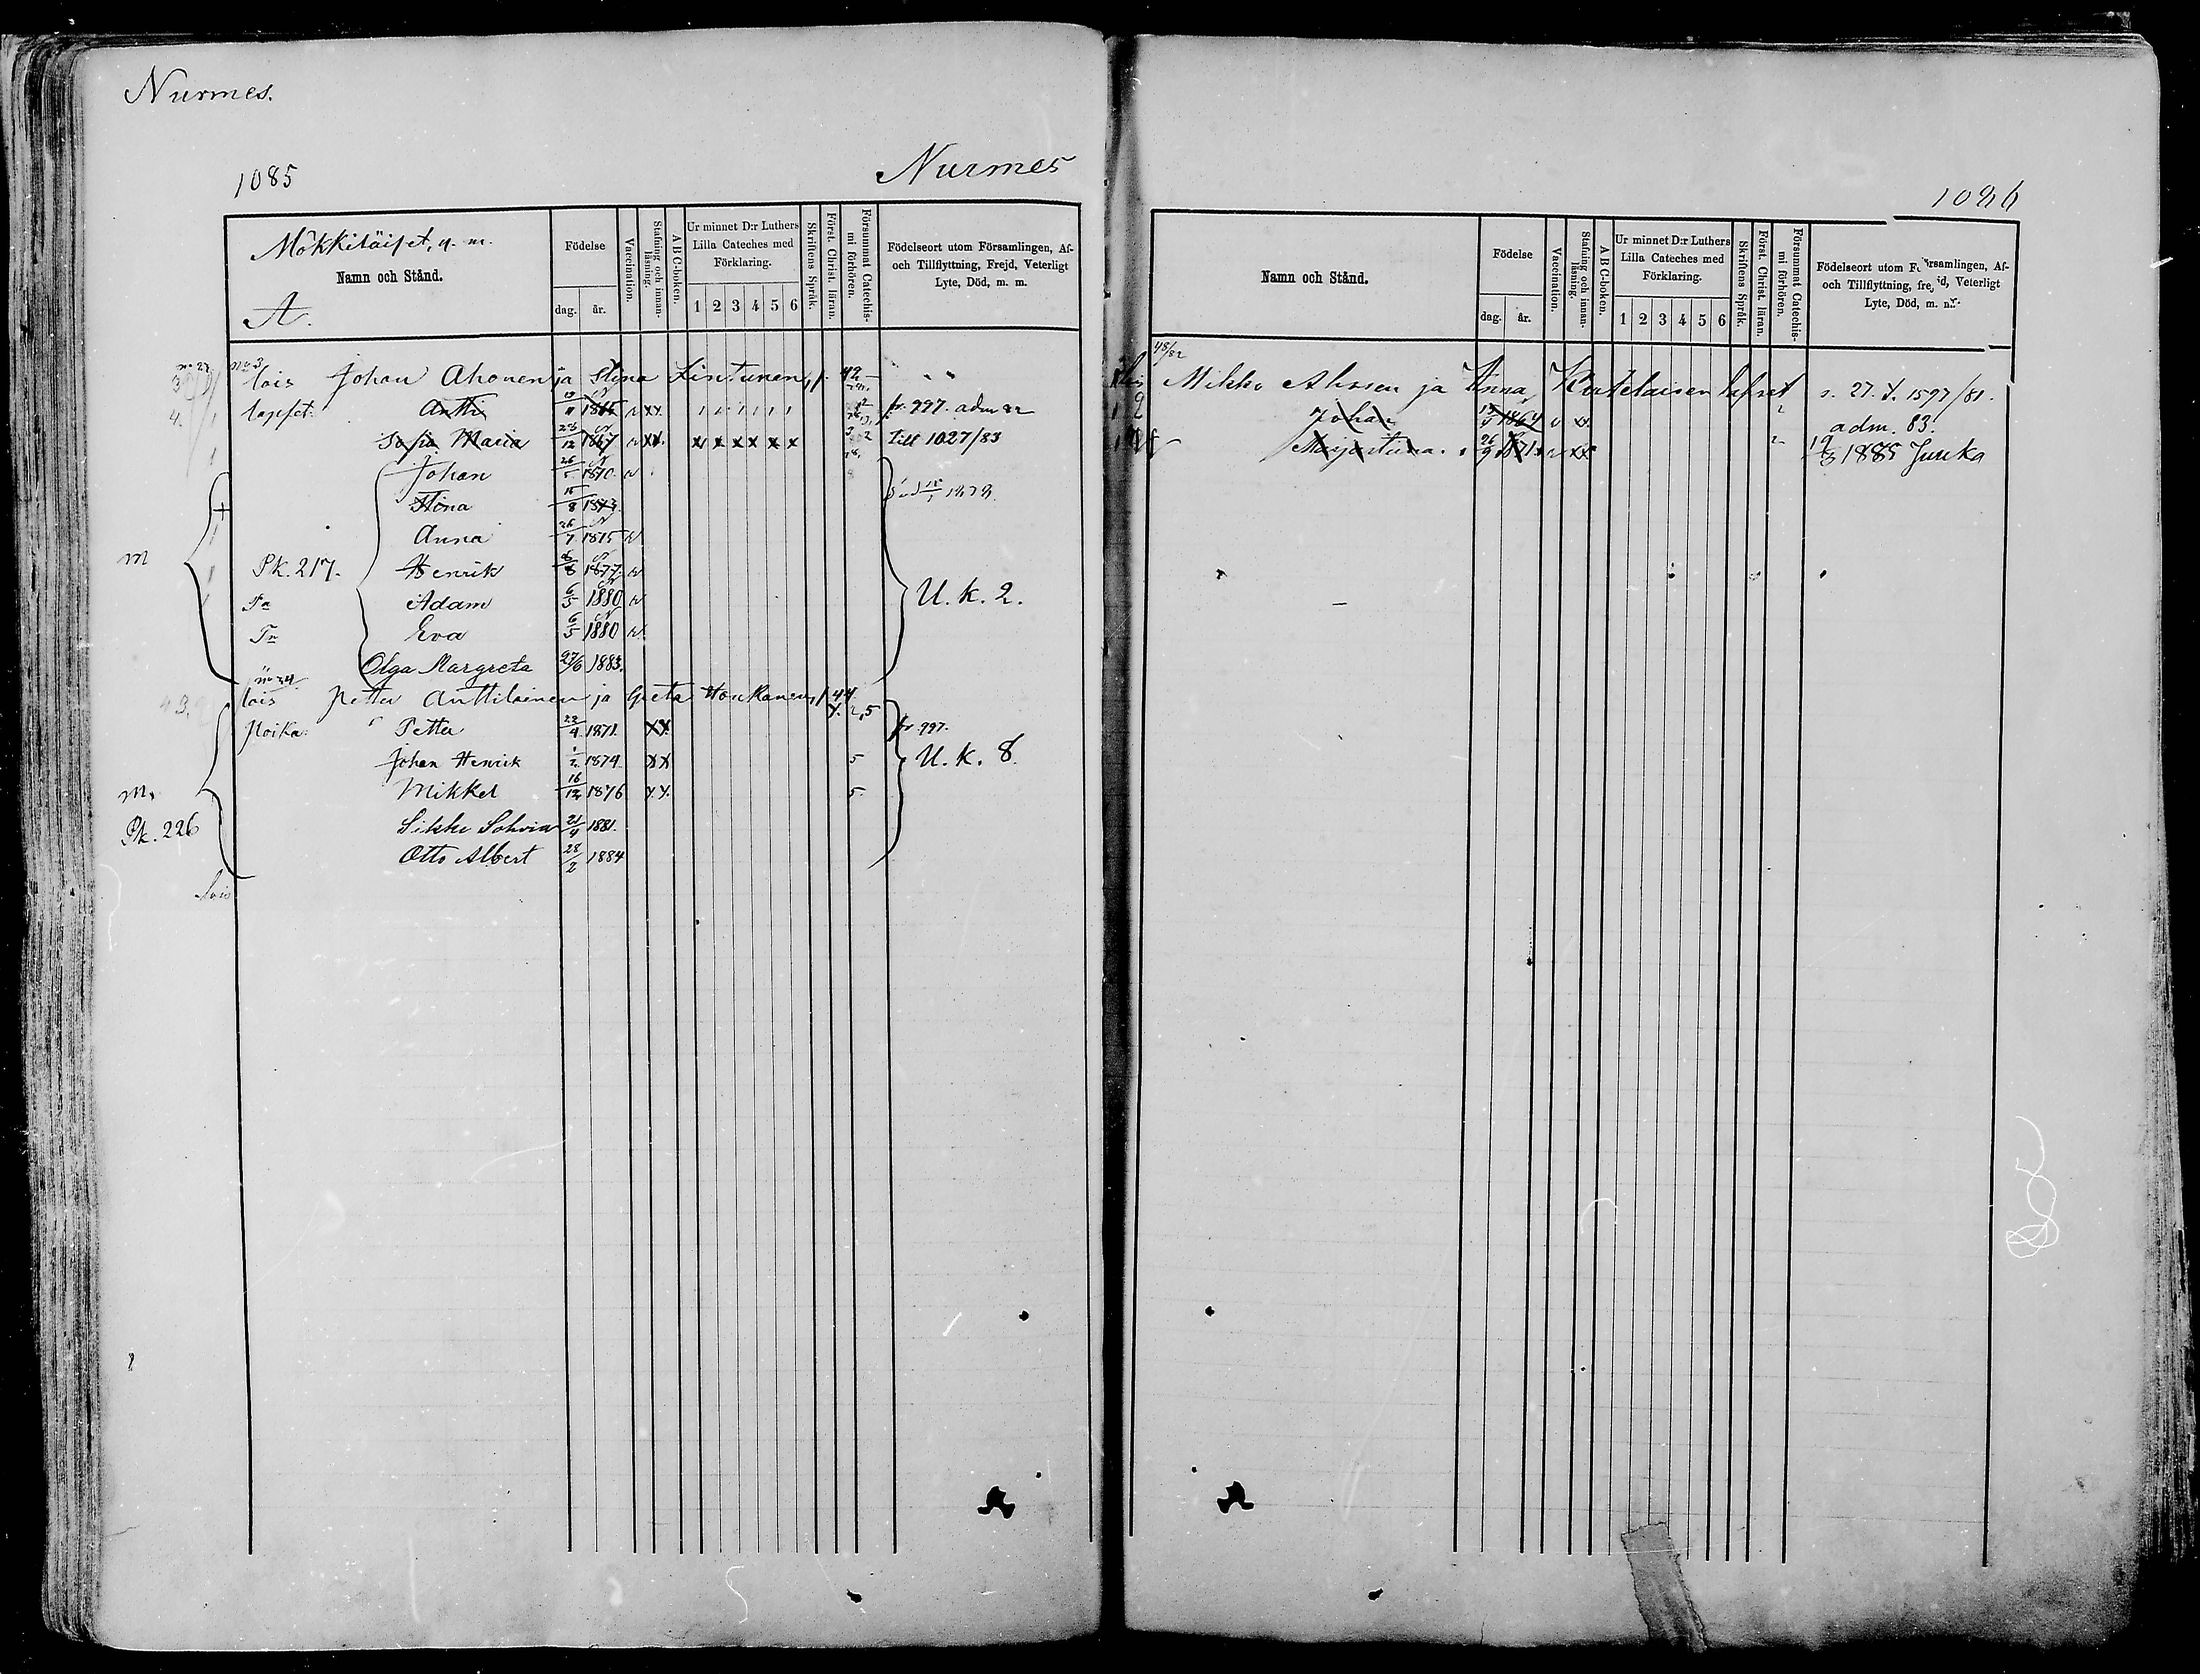 Nurmes.
1085
Nurmes
Mökkiläiset, y. m.
Namn och Stånd.
A.
Födelse
dag. år.
Vaccination.
Stafning och innan-läsning.
A B C-boken.
Ur minnet D:r Luthers
Lilla Cateches med
Förklaring.
1 2 3 4 5 6
Skriftens Språk.
Först. Christ. läran.
Försummat Catechis-mi förhören.
Födelseort utom Församlingen, Af-
och Tillflyttning, Frejd, Veterligt
Lyte, Död, m. m.
lois Johan Ahonen ja Stina Lintunen, 42
lapset: Antti 11 1865 v xx fr. 997. adm 82
Sofia Maria 28/12 1867 v xx x x x x x x till 1027/83
Johan 26 1870 v
Stina 15/8 1873 1878.
Anna 26/7 1875 v
m Pk. 217. Henrik 8 1877 v
Adam 6/5 1880 v U. k. 2.
Eva 6/5 1880 v
Olga Margreta 27/6 1883.
lois Petter Anttilainen ja Greta Houkanen, 44 2,5
Poika: Petter 23/4 1871 xx fr 997.
Johan Henrik 1874 xx 5 U. k. 8.
m. Mikkel 16/12 1876 x x 5
Pk. 226 Sikke Sohvia 21/4 1881.
Otto Albert 28/2 1884
lois
1086
Namn och Stånd.
Födelse
dag. år.
Vaccination.
Stafning och innan-läsning.
A B C-boken.
Ur minnet D:r Luthers
Lilla Cateches med
Förklaring.
1 2 3 4 5 6
Skriftens Språk.
Först. Christ. läran.
Försummat Catechis-mi förhören.
Födelseort utom Församlingen, Af-
och Tillflyttning, frejd, Veterligt
Lyte, Död, m. m.
48/82
Mikko Ahosen ja Anna lapset s. 27. f. 1597/81.
Johan 1864 v xx adm. 83.
Maja Stina 26/9 1871 v xx 19/3 1885 Juuka